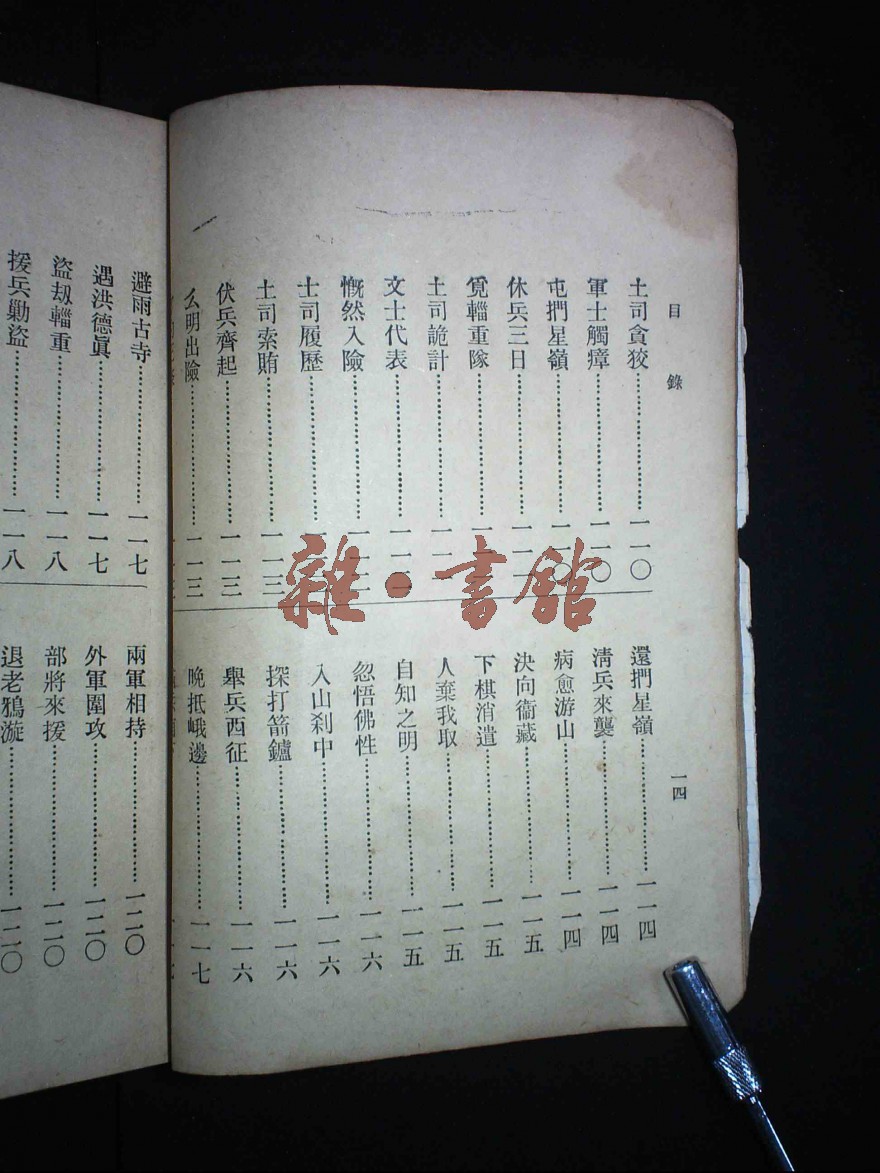 目錄
一四
土司貪狡⋯⋯一一〇
軍士觸瘴⋯⋯一一〇
屯捫星嶺⋯⋯一一〇
休兵三日⋯⋯一一
覓輜重隊⋯⋯一
土司詭計⋯⋯一一
文士代表⋯⋯一一
慨然入險⋯⋯一
土司履歷⋯⋯一
土司索賄⋯⋯一一三
伏兵齊起⋯⋯一一三
么明出險⋯⋯一一三
還捫星嶺⋯⋯一一四
清兵來襲⋯⋯一一四
病愈游山⋯⋯一一四
決向衞藏⋯⋯一一五
下棋消遣⋯⋯一一五
人棄我取⋯⋯一一五
自知之明⋯⋯一一五
忽悟佛性⋯⋯一一六
入山刹中⋯⋯一一六
探打箭鑪⋯⋯一一六
舉兵西征⋯⋯一一六
晚抵峨邊⋯⋯一一七
避雨古寺⋯⋯一一七
遇洪德眞⋯⋯一一七
盜刼輜重⋯⋯一一八
援兵勦盜⋯⋯一一八
兩軍相持⋯⋯一二〇
外軍圍攻⋯⋯一二〇
部將來援⋯⋯一二〇
退老鴉漩⋯⋯一二〇
雜·書館